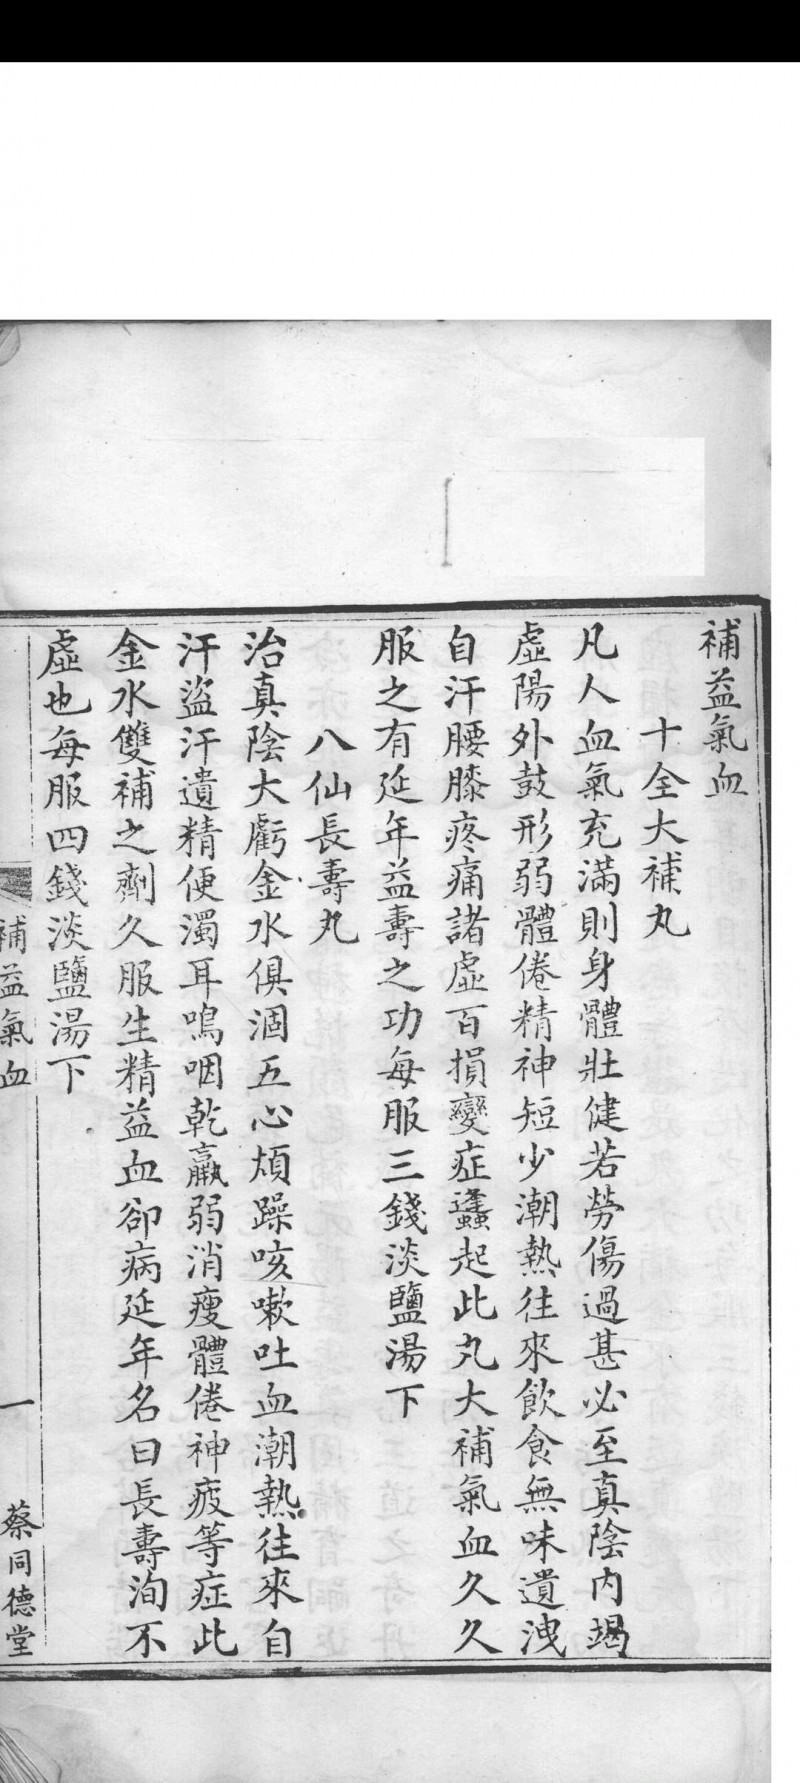 補益氣血
十全大補丸
凡人血氣充滿則身體壯健若勞傷過甚必至真陰内竭
虛陽外鼓形弱體倦精神短少潮熱往來飲食無味遺洩
自汗腰膝疼痛諸虛百損變症蠭起此丸大補氣血久久
服之有延年益壽之功每服三錢淡鹽湯下
八仙長壽丸
治真陰大虧金水俱涸五心煩躁咳嗽吐血潮熱往來自
汗盜汗遺精便濁耳鳴咽乾羸弱消瘦體倦神疲等症此
金水雙補之劑久服生精益血卻病延年名曰長壽洵不
虛也每服四錢淡鹽湯下
補益氣血
一
蔡同德堂